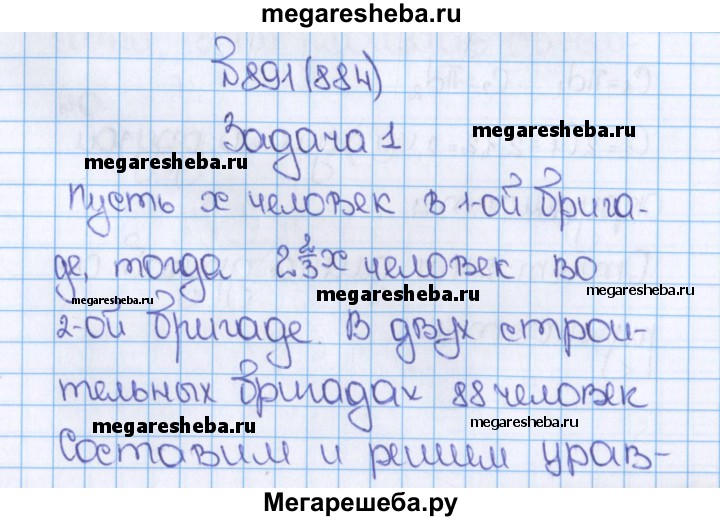 megaresheba.ru
№891(884)
Задача 1
megaresheba.ru
megaresheba.ru
Пусть x человек в 1-ой брига-
де, тогда 2 2/3 x человек во
megaresheba.ru
megaresheba.ru
megaresheba.ru
2-ой бригаде. В двух строи-
тельных бригадах 88 человек
megaresheba.ru
megaresheba.ru
Составим и решим урав-
Мегарешеба.ру